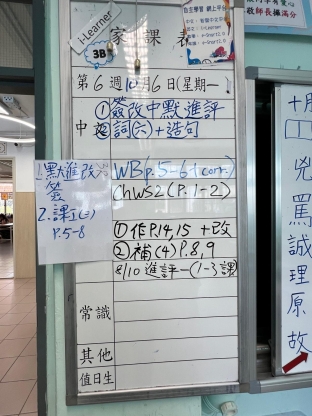 i-Learner
3B
家課表
自主學習 網上平台
第6週10月6日(星期一)
①簽改中默進評
中文②詞(六)+造句
1.默進改
簽
2.課工(三)
P.5-8
WB(p.5-6+corr.)
Ch WS2 (P.1-2)
①作P.14,15 +改
②補(4)P.8,9
8/10 進評一(1-3課)
常識
其他
值日生
十月
凶
罵
誠
理
原
故